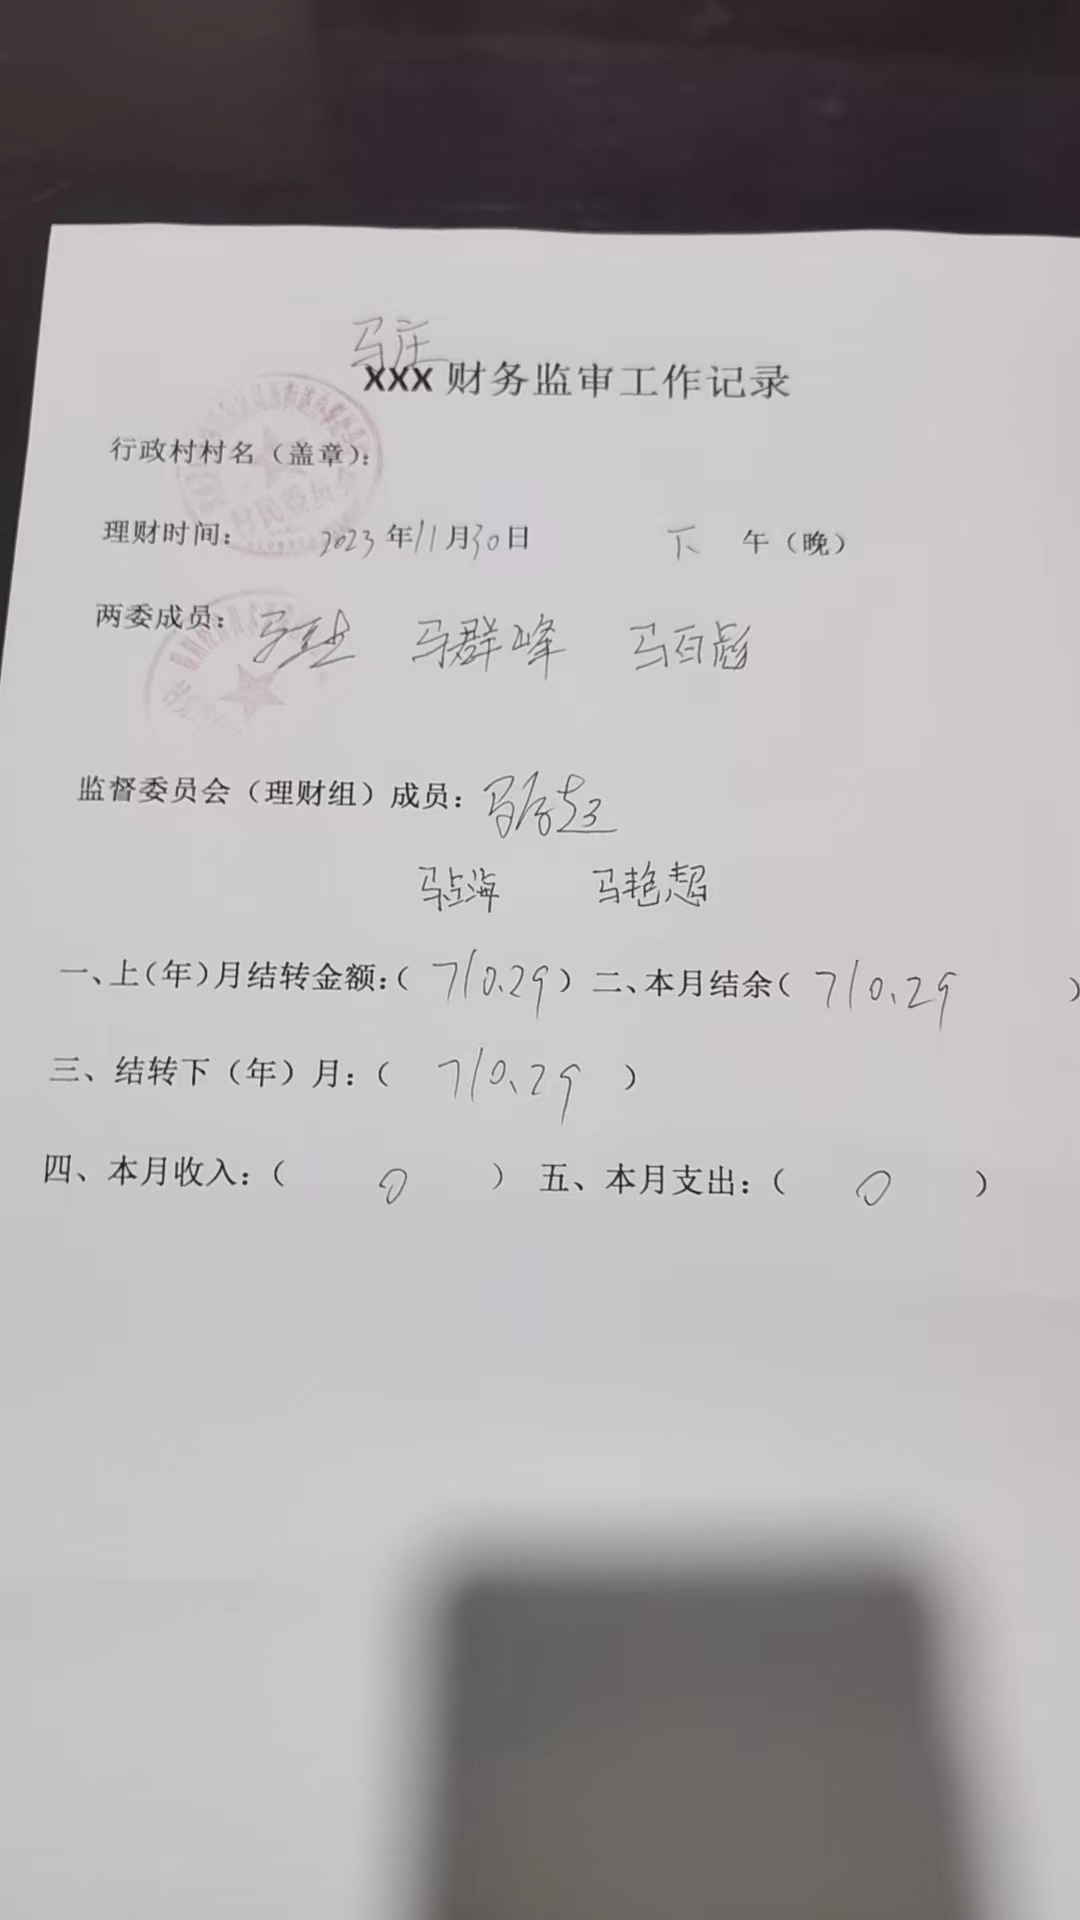 马庄
XXX 财务监审工作记录
行政村村名（盖章）：
村民委员会
理财时间： 2023年11月30日 下 午（晚）
两委成员： 马群峰 马百彪
监督委员会（理财组）成员：
马占海 马艳超
一、上（年）月结转金额:（ 710.29 ）二、本月结余（ 710.29 ）
三、结转下（年）月：（ 710.29 ）
四、本月收入:（ 0 ） 五、本月支出:（ 0 ）